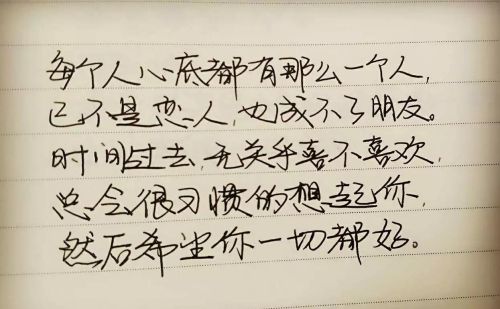 每个人心底都有那么一个人,
已不是恋人,也成不了朋友。
时间过去,无关乎喜不喜欢,
总会很习惯的想起你,
然后希望你一切都好。